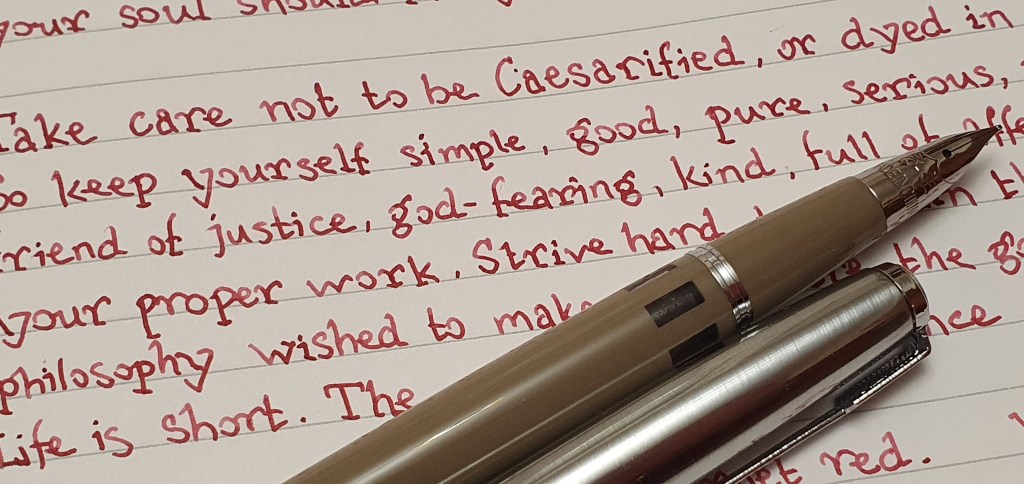 your soul should
Take care not to be Caesarified, or dyed in
So keep yourself simple, good, pure, serious,
friend of justice, god-fearing, kind, full of affe
your proper work. Strive hard
philosophy wished to make the
Life is short. The
red.